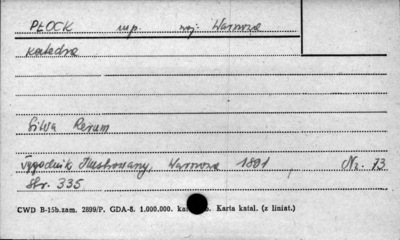 PŁOCK m.p. woj: Warszawa
Katedra
Silva Rerum
Tygodnik Ilustrowany, Warszawa 1891, Nr. 73
Str. 335
CWD B-15b.zam. 2899/P. GDA-8. 1.000.000. Karta katal. (z liniat.)